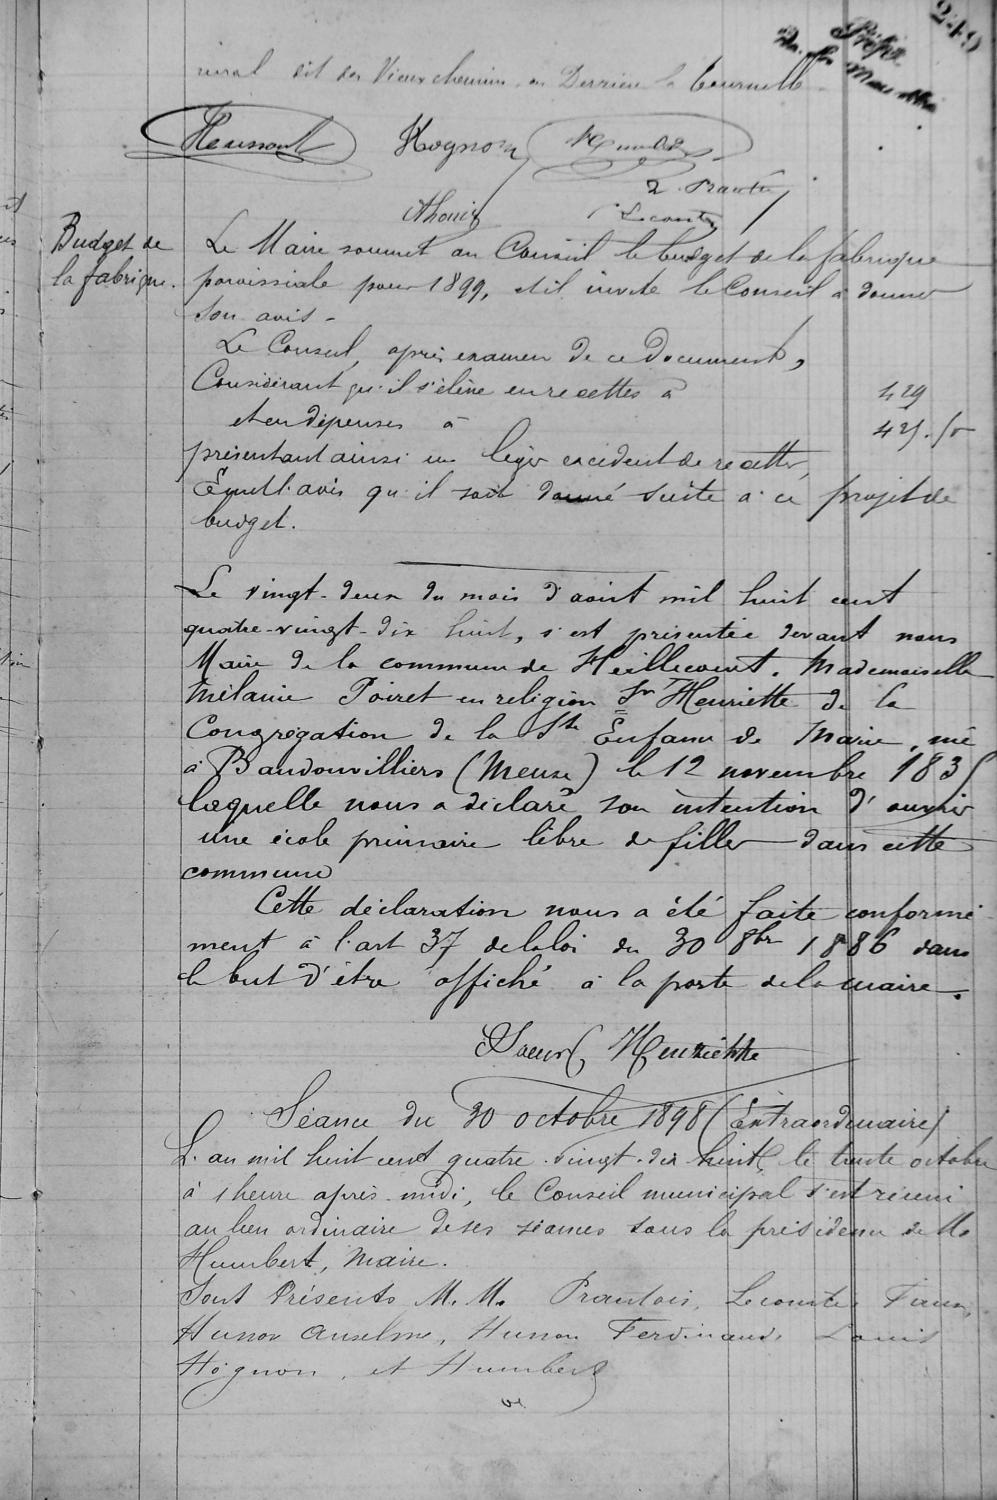 249
rural dit des Vieux chemins ou Derrière la Tournelle
Hognon
Thouin
Lecomte
Budget de
la fabrique.
Le Maire soumet au Conseil le budget de la fabrique
paroissiale pour 1899, et il invite le Conseil à donner
son avis -
Le Conseil, après examen de ce document,
Considérant qu'il s'élève en recettes à 429
et en dépenses à
présentant ainsi un léger excédent de recettes,
Émet l'avis qu'il soit donné suite à ce projet de
budget.
Le vingt-deux du mois d'août mil huit cent
quatre-vingt-dix huit, s'est présentée devant nous
Maire de la commune de Heillecourt. Mademoiselle
Mélanie Poiret en religion Sr Henriette de la
Congrégation de la Ste Enfance de Marie, née
à Baudonvilliers (Meuse) le 12 novembre 1835
laquelle nous a déclaré son intention d'ouvrir
une école primaire libre de filles dans cette
commune
Cette déclaration nous a été faite conformé
ment à l'art 37 de la loi du 30 8bre 1886 dans
le but d'être affiché à la porte de la mairie.
Soeur Henriette
Séance du 30 octobre 1898 (Extraordinaire)
L'an mil huit cent quatre-vingt-dix huit, le trente octobre
à 1 heure après-midi, le Conseil municipal s'est réuni
au lieu ordinaire de ses séances sous la présidence de Mr
Humbert, Maire.
Sont Présents M.M. Prautois, Lecomte,
Husson Anselme, Husson Ferdinand, Louis
Hognon, et Humbert